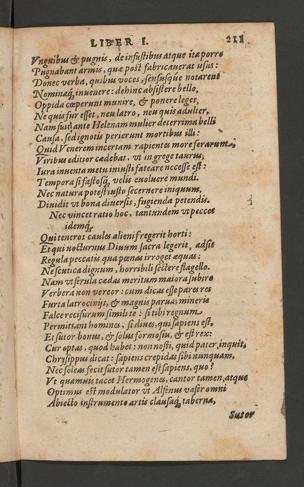 LIBER I. 211
Vnguibus & pugnis, de in fustibus atque ita porro
Pugnabant armis, quæ post fabricauerat vsus:
Donec verba, quibus voces, sensusque notarent
Nominaq́, inuenere: dehinc absistere bello,
Oppida cœperunt munire, & ponere leges,
Ne quis fur esset, neu latro, neu quis adulter,
Nam fuit ante Helenam mulier deterrima belli
Causa, sed ignotis perierunt mortibus illi:
Quid Venerem incertam rapientes more ferarum,
Viribus editior cædebat, vt in grege taurus,
Iura inuenta metu iniusti fateare necesse est:
Tempora si fastosq́, velis euoluere mundi.
Nec natura potest iusto secernere iniquum,
Diuidit vt bona diuersis, fugienda petendis.
Nec vincet ratio hoc, tantundem vt peccet
idemq́,
Qui teneros caules alieni fregerit horti:
Et qui nocturnus Diuum sacra legerit, adsit
Regula peccatis quæ pœnas irroget æquas:
Ne scutica dignum, horribili sectere flagello.
Nam vt ferula cædas meritum maiora subire
Verbera non vereor: cum dicas esse pares res
Furta latrocinijs, & magnis parua: mineris
Falce recisurum simili te: si tibi regnum
Permittant homines, si diues, qui sapiens est,
Et sutor bonus, & solus formosus, & est rex:
Cur optas, quod habes: non nosti, quid pater, inquit,
Chrysippus dicat: sapiens crepidas sibi nunquam,
Nec soleas fecit sutor tamen est sapiens, quo?
Vt quamuis tacet Hermogenes, cantor tamen, atque
Optimus est modulator vt Alfenus vafer omni
Abiecto instrumento artis clausaq́, taberna,
Sutor